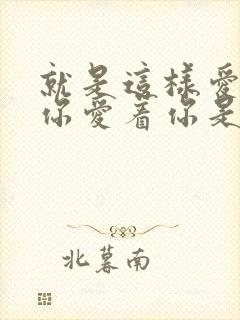 就是這樣愛
你愛着你是
北暮南